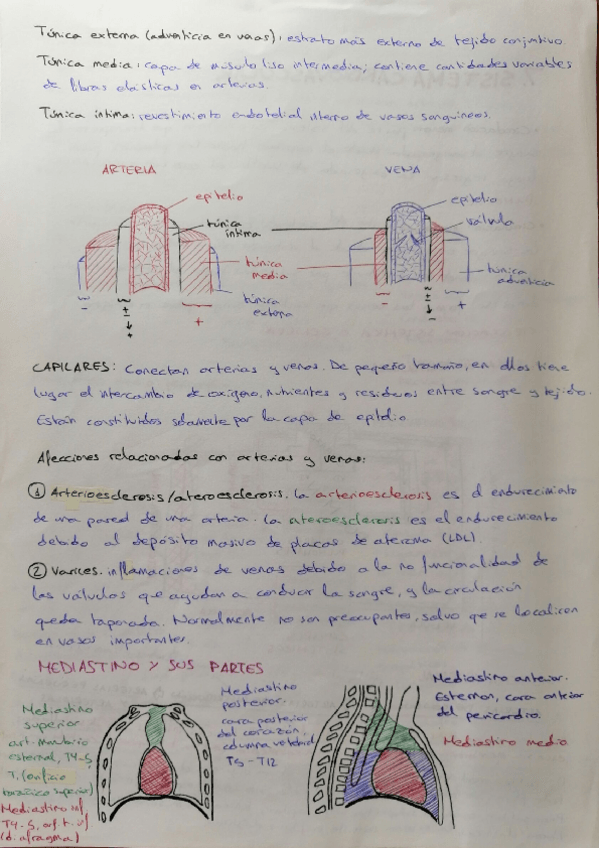 Túnica externa (adventicia en vasos): estrato más externo de tejido conjuntivo.
Túnica media: capa de músculo liso intermedia; contiene cantidades variables
de fibras elásticas en arterias.
Túnica íntima: revestimiento endotelial interno de vasos sanguíneos.
ARTERIA
VENA
epitelio
túnica
íntima
túnica
media
túnica
externa
epitelio
válvula
túnica
adventicia
- ± + +
- ± - +
CAPILARES: Conectan arterias y venas. De pequeño tamaño, en ellos tiene
lugar el intercambio de oxígeno, nutrientes y residuos entre sangre y tejido.
Están constituidos solamente por la capa de epitelio
Afecciones relacionadas con arterias y venas:
① Arterioesclerosis/ateroesclerosis. La arterioesclerosis es el endurecimiento
de una pared de una arteria. La ateroesclerosis es el endurecimiento
debido al depósito masivo de placas de ateroma (LDL).
② Varices. inflamaciones de venas debido a la no funcionalidad de
las válvulas que ayudan a conducir la sangre, y la circulación
queda taponada. Normalmente no son preocupantes, salvo que se localicen
en vasos importantes.
MEDIASTINO Y SUS PARTES
Mediastino
superior
art. manubrio
esternal, T4-5
T. (orificio
torácico superior)
Mediastino inf
T4-5, orf. t. inf
(diafragma)
Mediastino
posterior.
cara posterior
del corazón,
columna vertebral
T5-T12
Mediastino anterior.
Esternon, cara anterior
del pericardio.
Mediastino medio